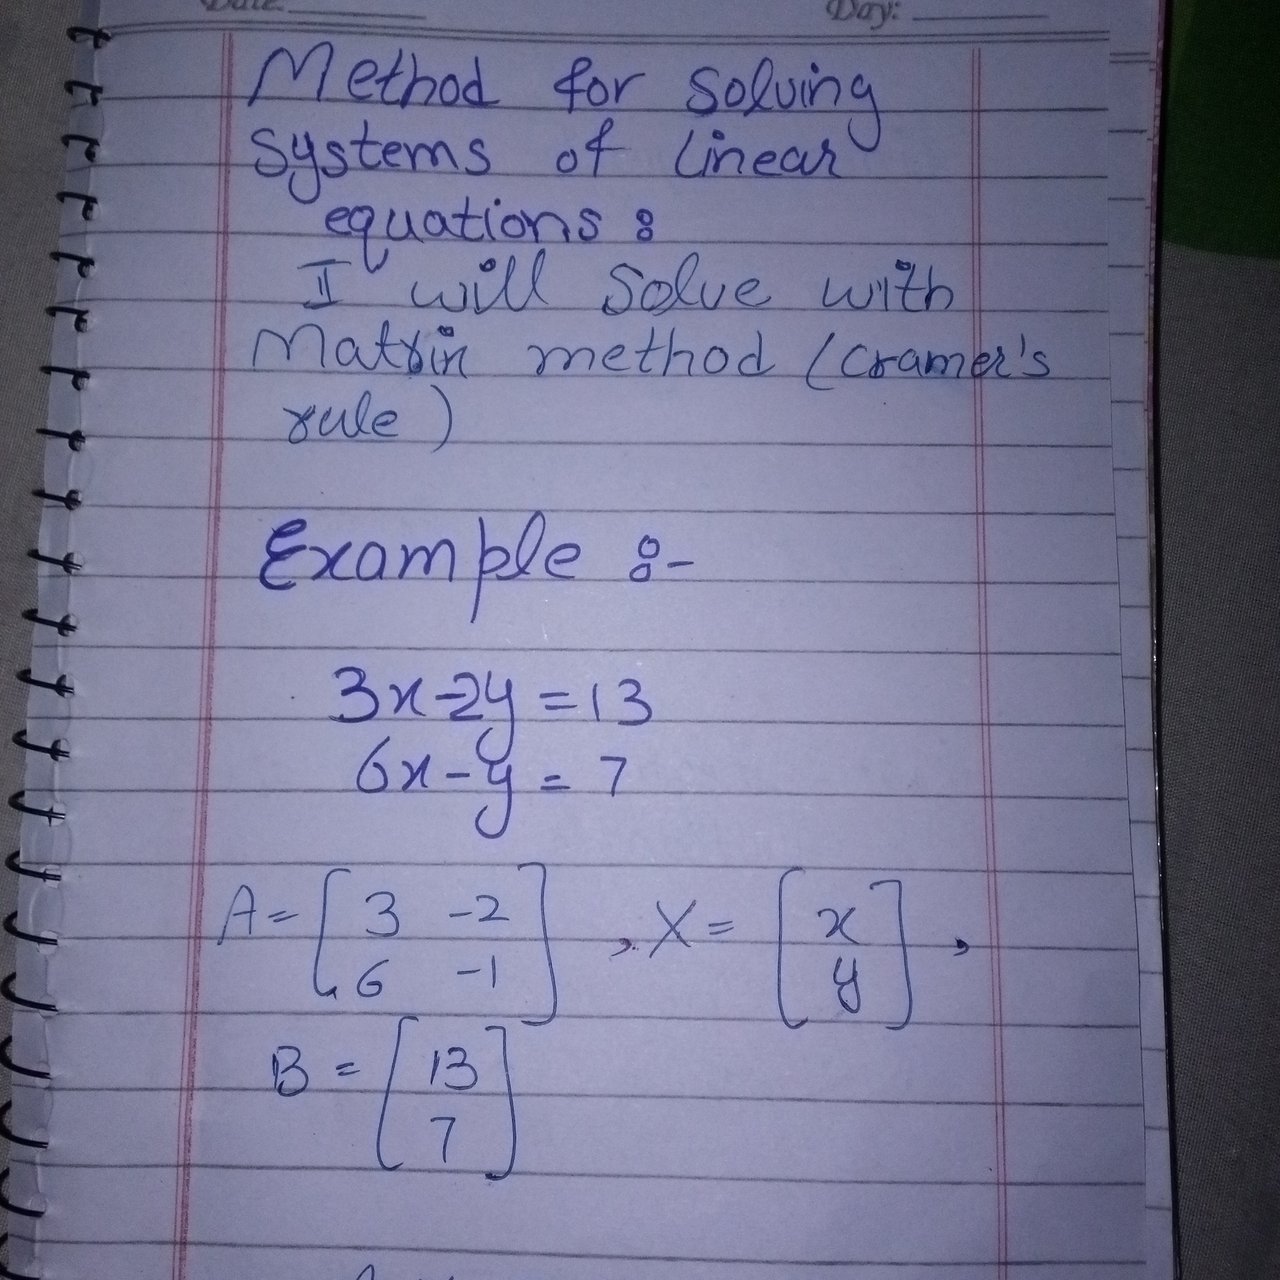 Date Day:
Method for Solving
Systems of Linear
equations :
I will Solve with
Matrix method (Cramer's
rule)
Example :-
3x-2y=13
6x-y=7
A= [ 3 -2 , X= [ x ,
6 -1 ] y ]
B = [ 13
7 ]